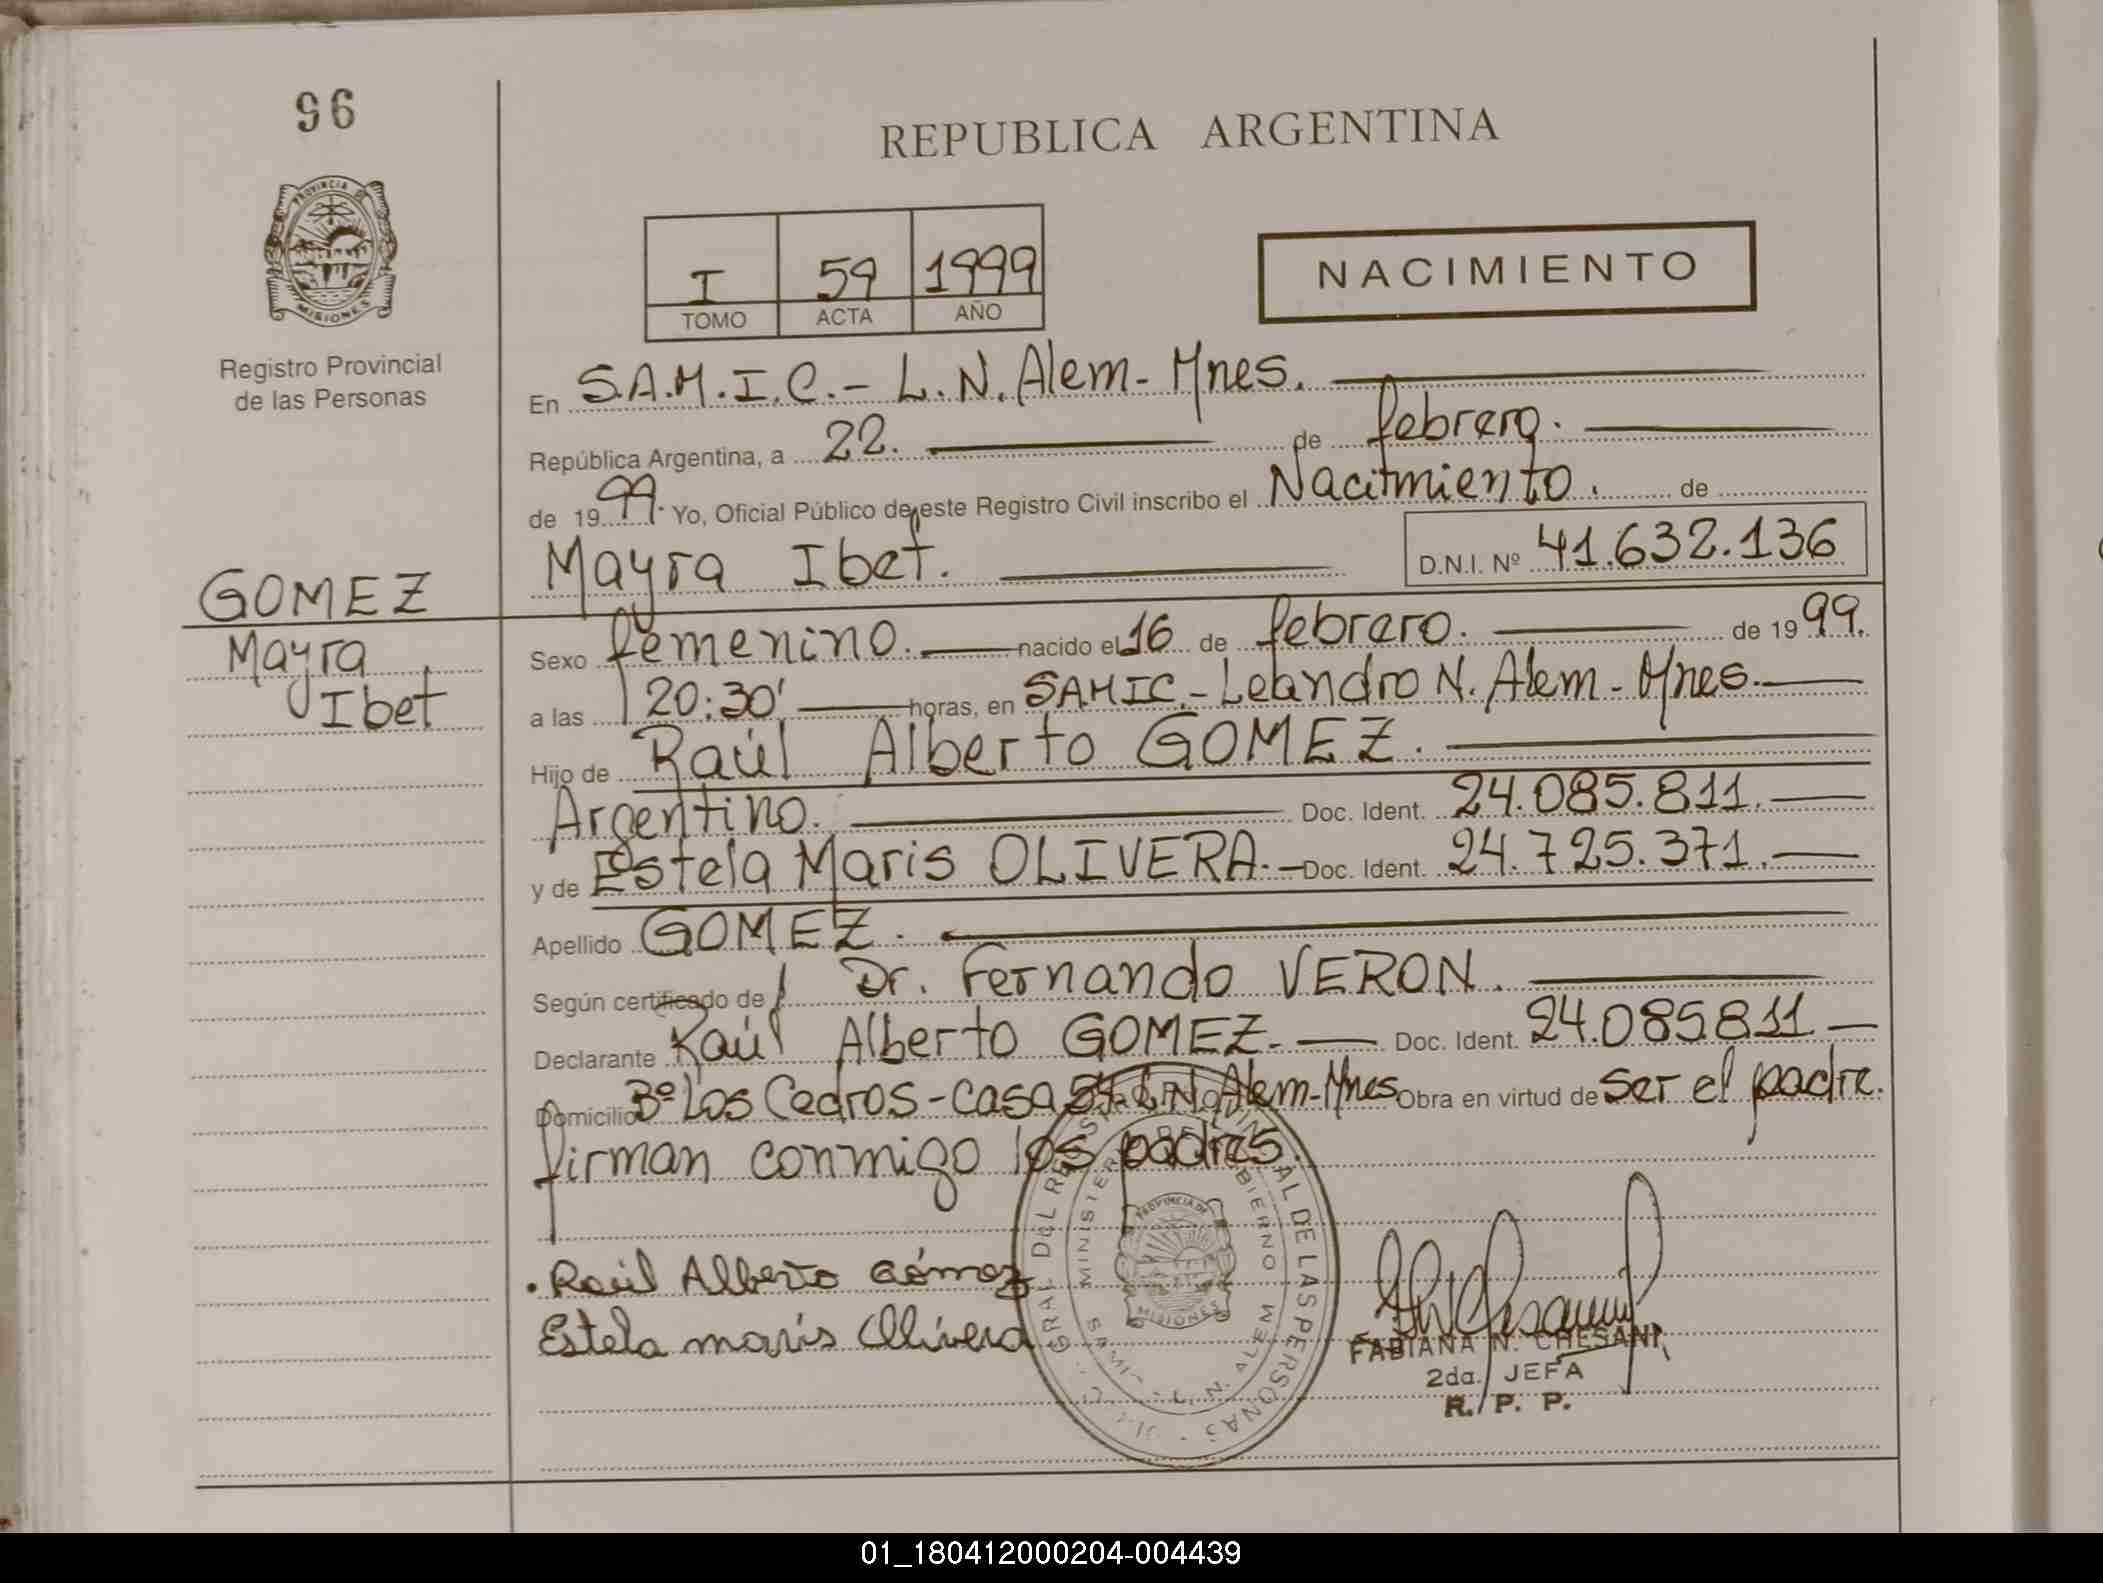 96
PROVINCIA DE
MISIONES
Registro Provincial
de las Personas
REPUBLICA ARGENTINA
I 59 1999
TOMO ACTA AÑO
NACIMIENTO
En S.A.M.I.C.- L.N. Alem- Mnes.
República Argentina, a 22. de febrero.
de 1999. Yo, Oficial Público de este Registro Civil inscribo el Nacitmiento. de
Mayra Ibet. D.N.I. Nº 41.632.136
GOMEZ
Mayra
Ibet
Sexo femenino. nacido el 16 de febrero. de 1999.
a las 20:30' horas, en SAMIC.- Leandro N. Alem - Mnes.
Hijo de Raúl Alberto GOMEZ.
Argentino. Doc. Ident. 24.085.811.
y de Estela Maris OLIVERA.- Doc. Ident. 24.725.371.
Apellido GOMEZ.
Según certificado de Dr. Fernando VERON.
Declarante Raúl Alberto GOMEZ.- Doc. Ident. 24.085811
Domicilio Bº Los Cedros - casa L.N. Alem-Mnes Obra en virtud de ser el padre.
firman conmigo los padres.
Raúl Alberto Gómez
Estela maris Olivera
GRAL. DEL DE LAS PERSONAS
L. N. ALEM
PROVINCIA DE
MISIONES
FABIANA N. CHESANI
2da. JEFA
R. P. P.
01_180412000204-004439